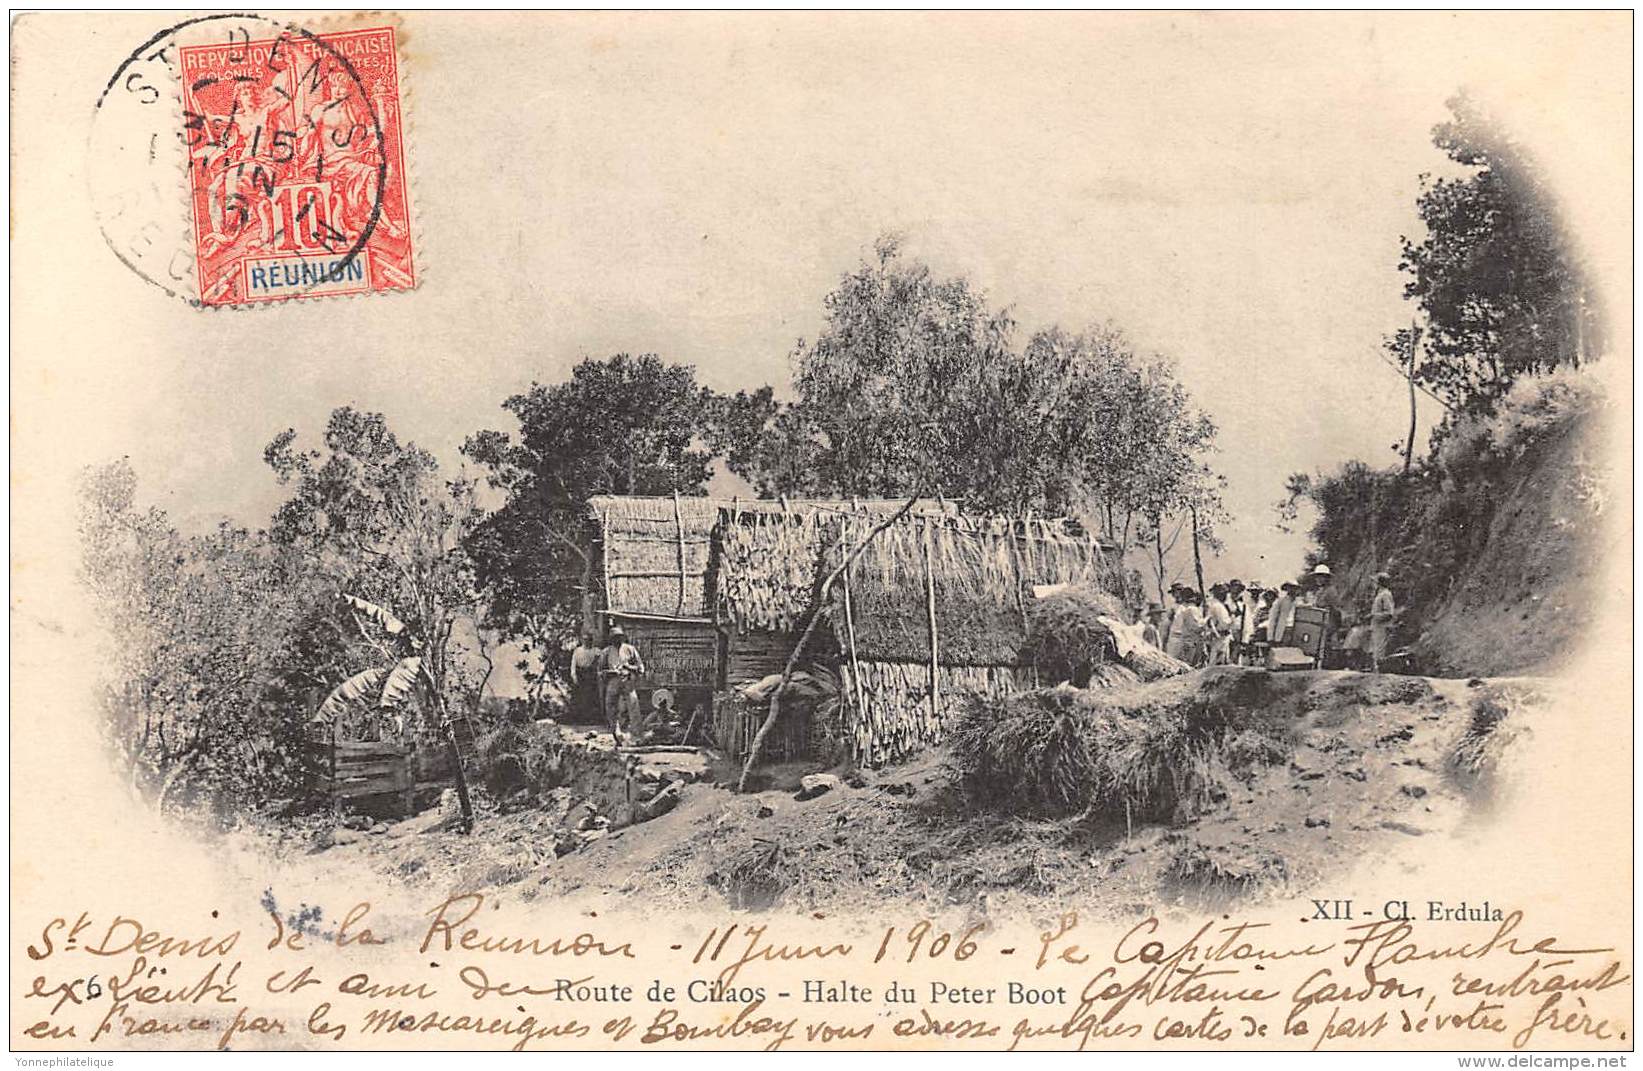 REPVBLIQUE FRANÇAISE
COLONIES POSTES
10
RÉUNION
ST DENIS
15
RÉUNION
XII - Cl. Erdula
St Denis de la Réunion - 11 Juin 1906 - Le Capitaine
ex et ami du Capitaine Cardon, rentrant
Route de Cilaos - Halte du Peter Boot
en France par les Mascareignes et Bombay vous adresse quelques cartes de la part de votre frère.
Yonnephilatelique
delcampe.net